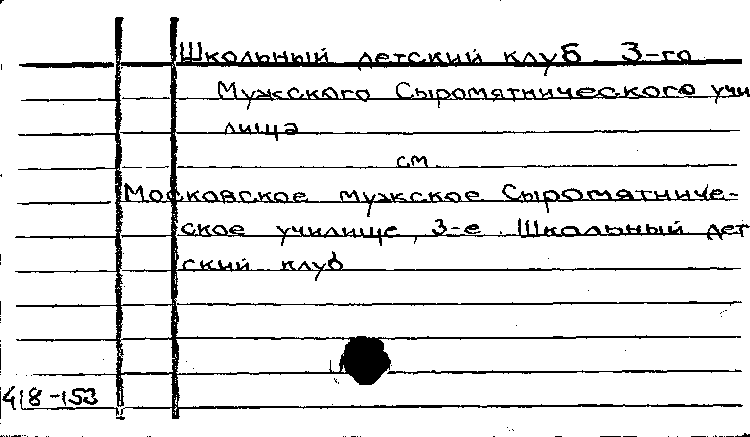 Школьный детский клуб 3-го
Мужского Сыромятнического учи
лища
см.
Московское мужское Сыромятниче-
ское училище, 3-е. Школьный дет
ский клуб
418-153